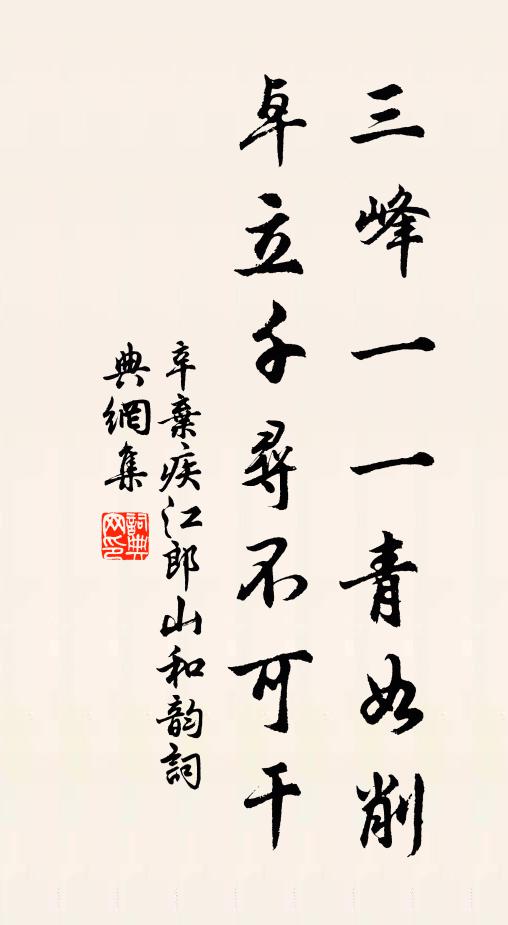 三峰一一青如削
卓立千尋不可干
辛棄疾江郎山和韵詞
典網集
詞典网印